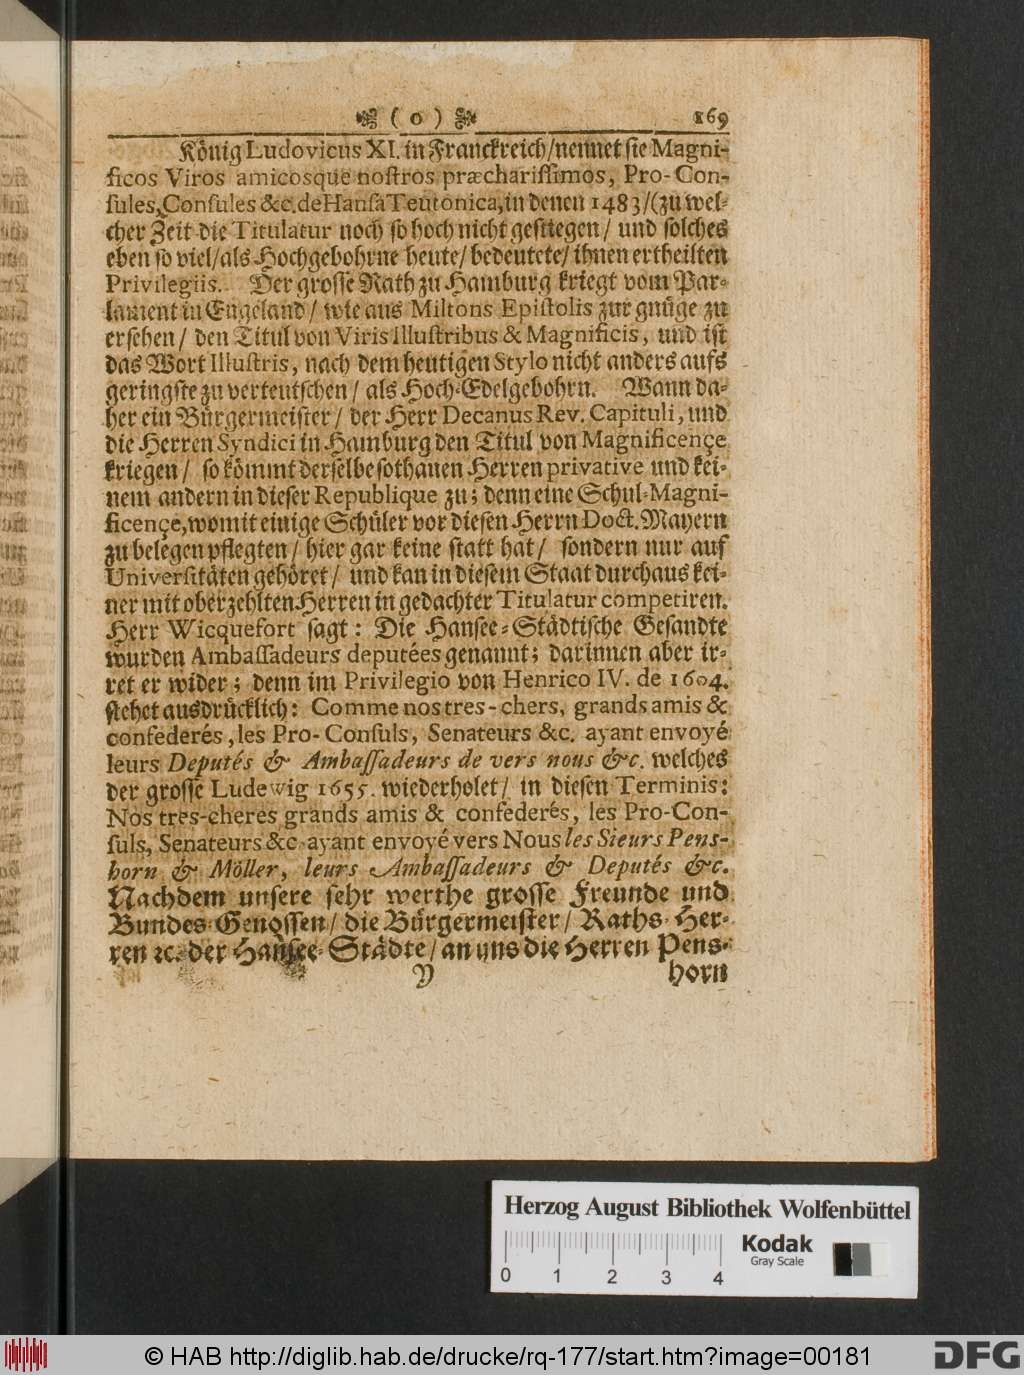 ( 0 ) 169
König Ludovicus XI. in Franckreich/nennet sie Magni-
ficos Viros amicosque nostros præcharissimos, Pro-Con-
sules, Consules &c. de Hansa Teutonica, in denen 1483/(zu wel-
cher Zeit die Titulatur noch so hoch nicht gestiegen/ und solches
eben so viel/als Hochgebohrne heute/ bedeutete/ ihnen ertheilten
Privilegiis. Der grosse Rath zu Hamburg kriegt vom Par-
lament in Engeland/ wie aus Miltons Epistolis zur gnüge zu
ersehen/ den Titul von Viris Illustribus & Magnificis, und ist
das Wort Illustris, nach dem heutigen Stylo nicht anders aufs
geringste zu verteutschen/ als Hoch-Edelgebohrn. Wann da-
her ein Bürgermeister/ der Herr Decanus Rev. Capituli, und
die Herren Syndici in Hamburg den Titul von Magnificençe
kriegen/ so kömmt derselbe sothanen Herren privative und kei-
nem andern in dieser Republique zu; denn eine Schul-Magni-
ficençe, womit einige Schüler vor diesen Herrn Doct. Mayern
zu belegen pflegten/ hier gar keine statt hat/ sondern nur auf
Universitäten gehöret/ und kan in diesem Staat durchaus kei-
ner mit oberzehlten Herren in gedachter Titulatur competiren.
Herr Wicquefort sagt: Die Hansee-Städtische Gesandte
würden Ambassadeurs deputées genannt; darinnen aber ir-
ret er wider; denn im Privilegio von Henrico IV. de 1604.
stehet ausdrücklich: Comme nos tres-chers, grands amis &
confederés, les Pro-Consuls, Senateurs &c. ayant envoyé
leurs Deputés & Ambassadeurs de vers nous &c. welches
der grosse Ludewig 1655. wiederholet/ in diesen Terminis:
Nos tres-cheres grands amis & confederés, les Pro-Con-
suls, Senateurs &c ayant envoyé vers Nous les Sieurs Pens-
horn & Möller, leurs Ambassadeurs & Deputés &c.
Nachdem unsere sehr werthe grosse Freunde und
Bundes-Genossen/ die Bürgermeister/ Raths-Her-
ren ꝛc. der Hansee-Städte/ an uns die Herren Pens-
Y horn
Herzog August Bibliothek Wolfenbüttel
Kodak
Gray Scale
0 1 2 3 4
© HAB http://diglib.hab.de/drucke/rq-177/start.htm?image=00181
DFG